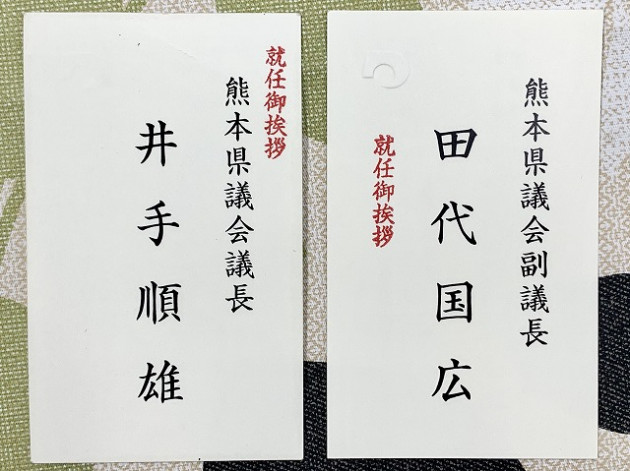 就任御挨拶
熊本県議会議長
井手順雄
熊本県議会副議長
田代国広
就任御挨拶